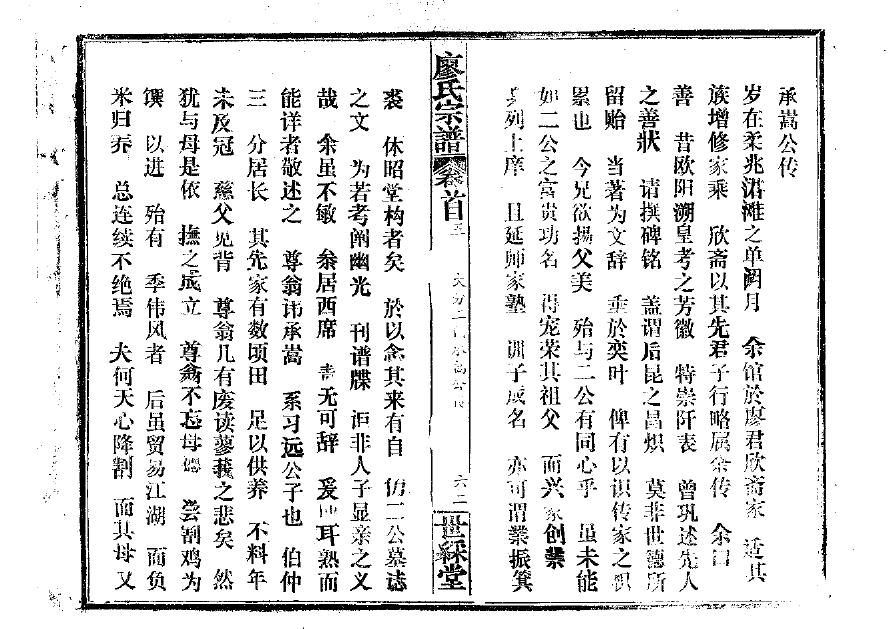 承嵩公传
岁在柔兆涒滩之单阏月 余馆於廖君欣斋家 适其
族增修家乘 欣斋以其先君子行略属余传 余曰
善 昔欧阳溯皇考之芳徽 特崇阡表 曾巩述先人
之善状 请撰碑铭 盖谓后昆之昌炽 莫非世德所
留贻 当著为文辞 垂於奕叶 俾有以识传家之积
累也 今兄欲揚父美 殆与二公有同心乎 虽未能
如二公之富贵功名 得宠荣其祖父 而兴家创業
列上庠 且延师家塾 训子成名 亦可谓業振箕
廖氏宗譜 卷首 五 六二 世綵堂
裘 休昭堂构者矣 於以念其来有自 仿二公墓誌
之文 为若考阐幽光 刊谱牒 洵非人子显亲之义
哉 余虽不敏 叅居西席 无可辞 爰 耳熟而
能详者敬述之 尊翁讳承嵩 系习远公子也 伯仲
三 分居长 其先家有数顷田 足以供养 不料年
未及冠 慈父见背 尊翁几有废读蓼莪之悲矣 然
犹与母是依 撫之成立 尊翁不忘母德 尝割鸡为
馔 以进 殆有 季伟风者 后虽贸易江湖 而负
米归养 总连续不绝焉 夫何天心降割 而其母又